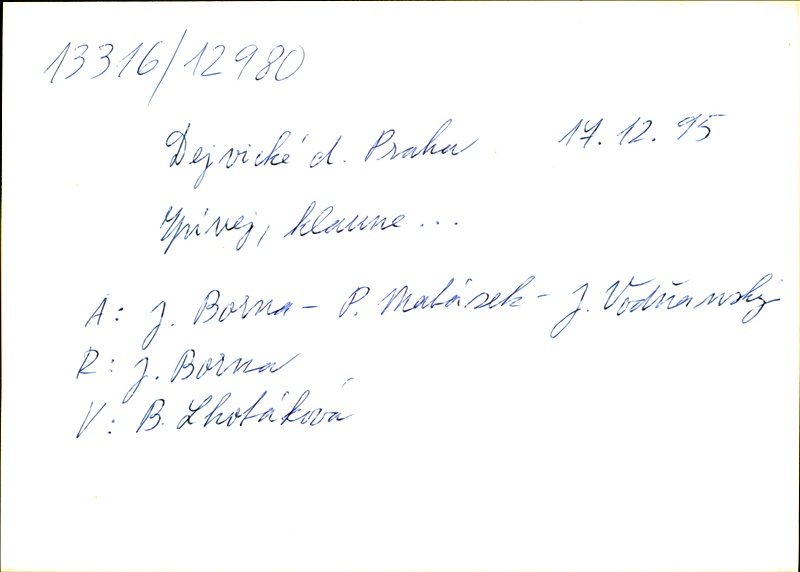 13316/12980
Dejvické d. Praha 17. 12. 95
Zpívej, klaune...
A: J. Borna - P. Matásek - J. Vodňanský
R: J. Borna
V: B. Lhotáková